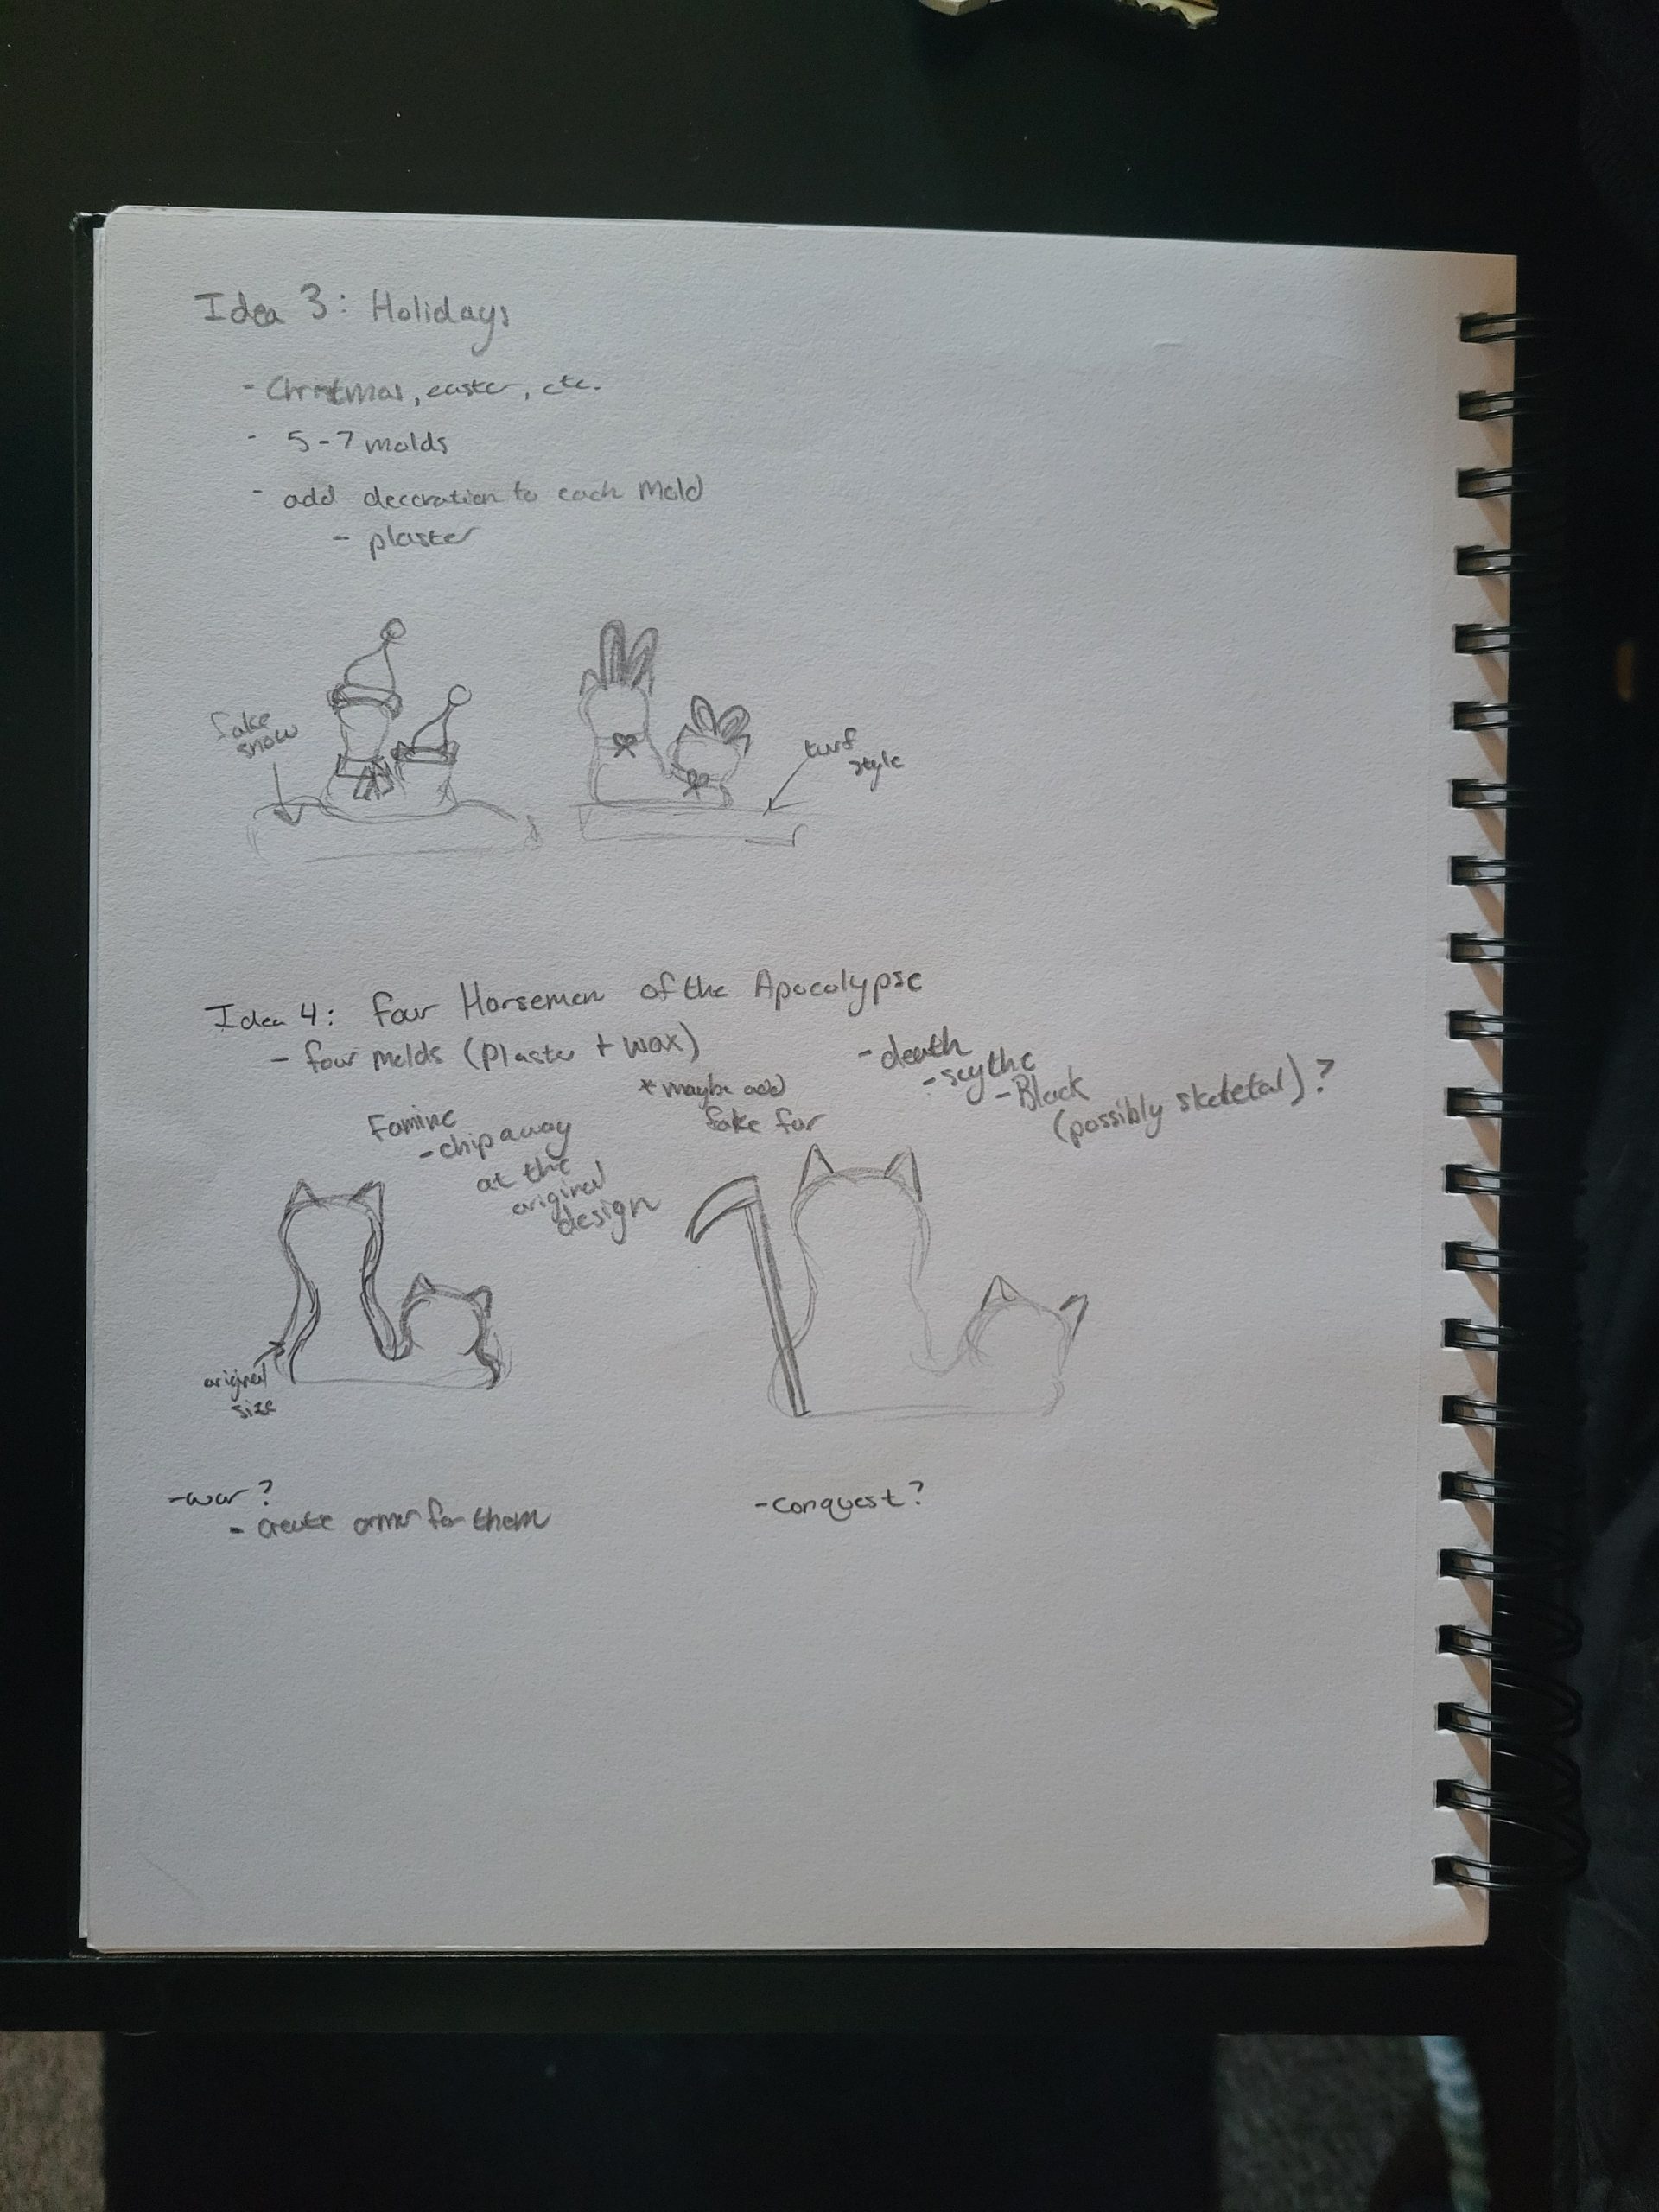 Idea 3: Holidays
- Christmas, easter, etc.
- 5-7 molds
- add decoration to each mold
- plaster
fake
snow
turf
style
Idea 4: Four Horsemen of the Apocolypse
- four molds (plaster + wax)
* maybe add
fake fur
- death
- scythe
- Black
(possibly skeletal)?
Famine
- chip away
at the
original
design
original
size
- war?
- create armor for them
- conquest?